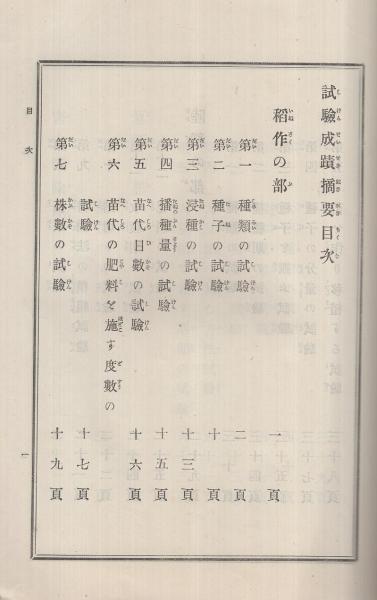 試驗成蹟摘要目次
稻作の部 一頁
第一 種類の試驗 二頁
第二 種子の試驗 十頁
第三 浸種の試驗 十三頁
第四 播種量の試驗 十五頁
第五 苗代日數の試驗 十六頁
第六 苗代の肥料を施す度數の
試驗 十七頁
第七 株數の試驗 十九頁
目次
一